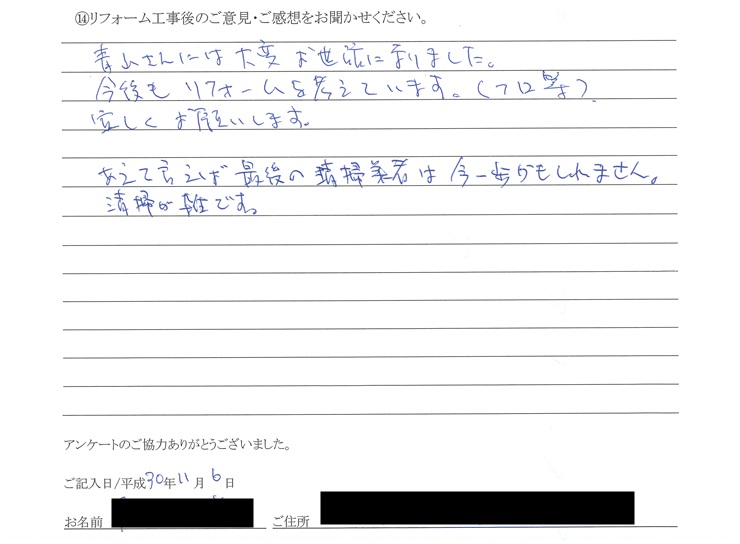 ⑭リフォーム工事後のご意見・ご感想をお聞かせください。
青山さんには大変お世話に有りました。
今後もリフォームを考えています。(フロ等)
宜しくお願いします。
あえて言えば最後の清掃業者は今一歩かもしれません。
清掃が雑です。
アンケートのご協力ありがとうございました。
ご記入日/平成30年11月6日
お名前 ご住所